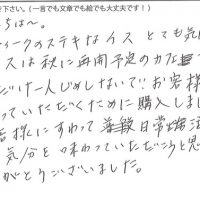 下さい。(一言でも文章でも絵でも大丈夫です!)
ちは〜。
ークのステキなイス とても気
スは秋に再開予定のカフェ
だけ一人じめしないで!! お客様
っていただくために購入しまし
客様にすわって 日常 活
気分を味わっていただこうと思
がとうございました。